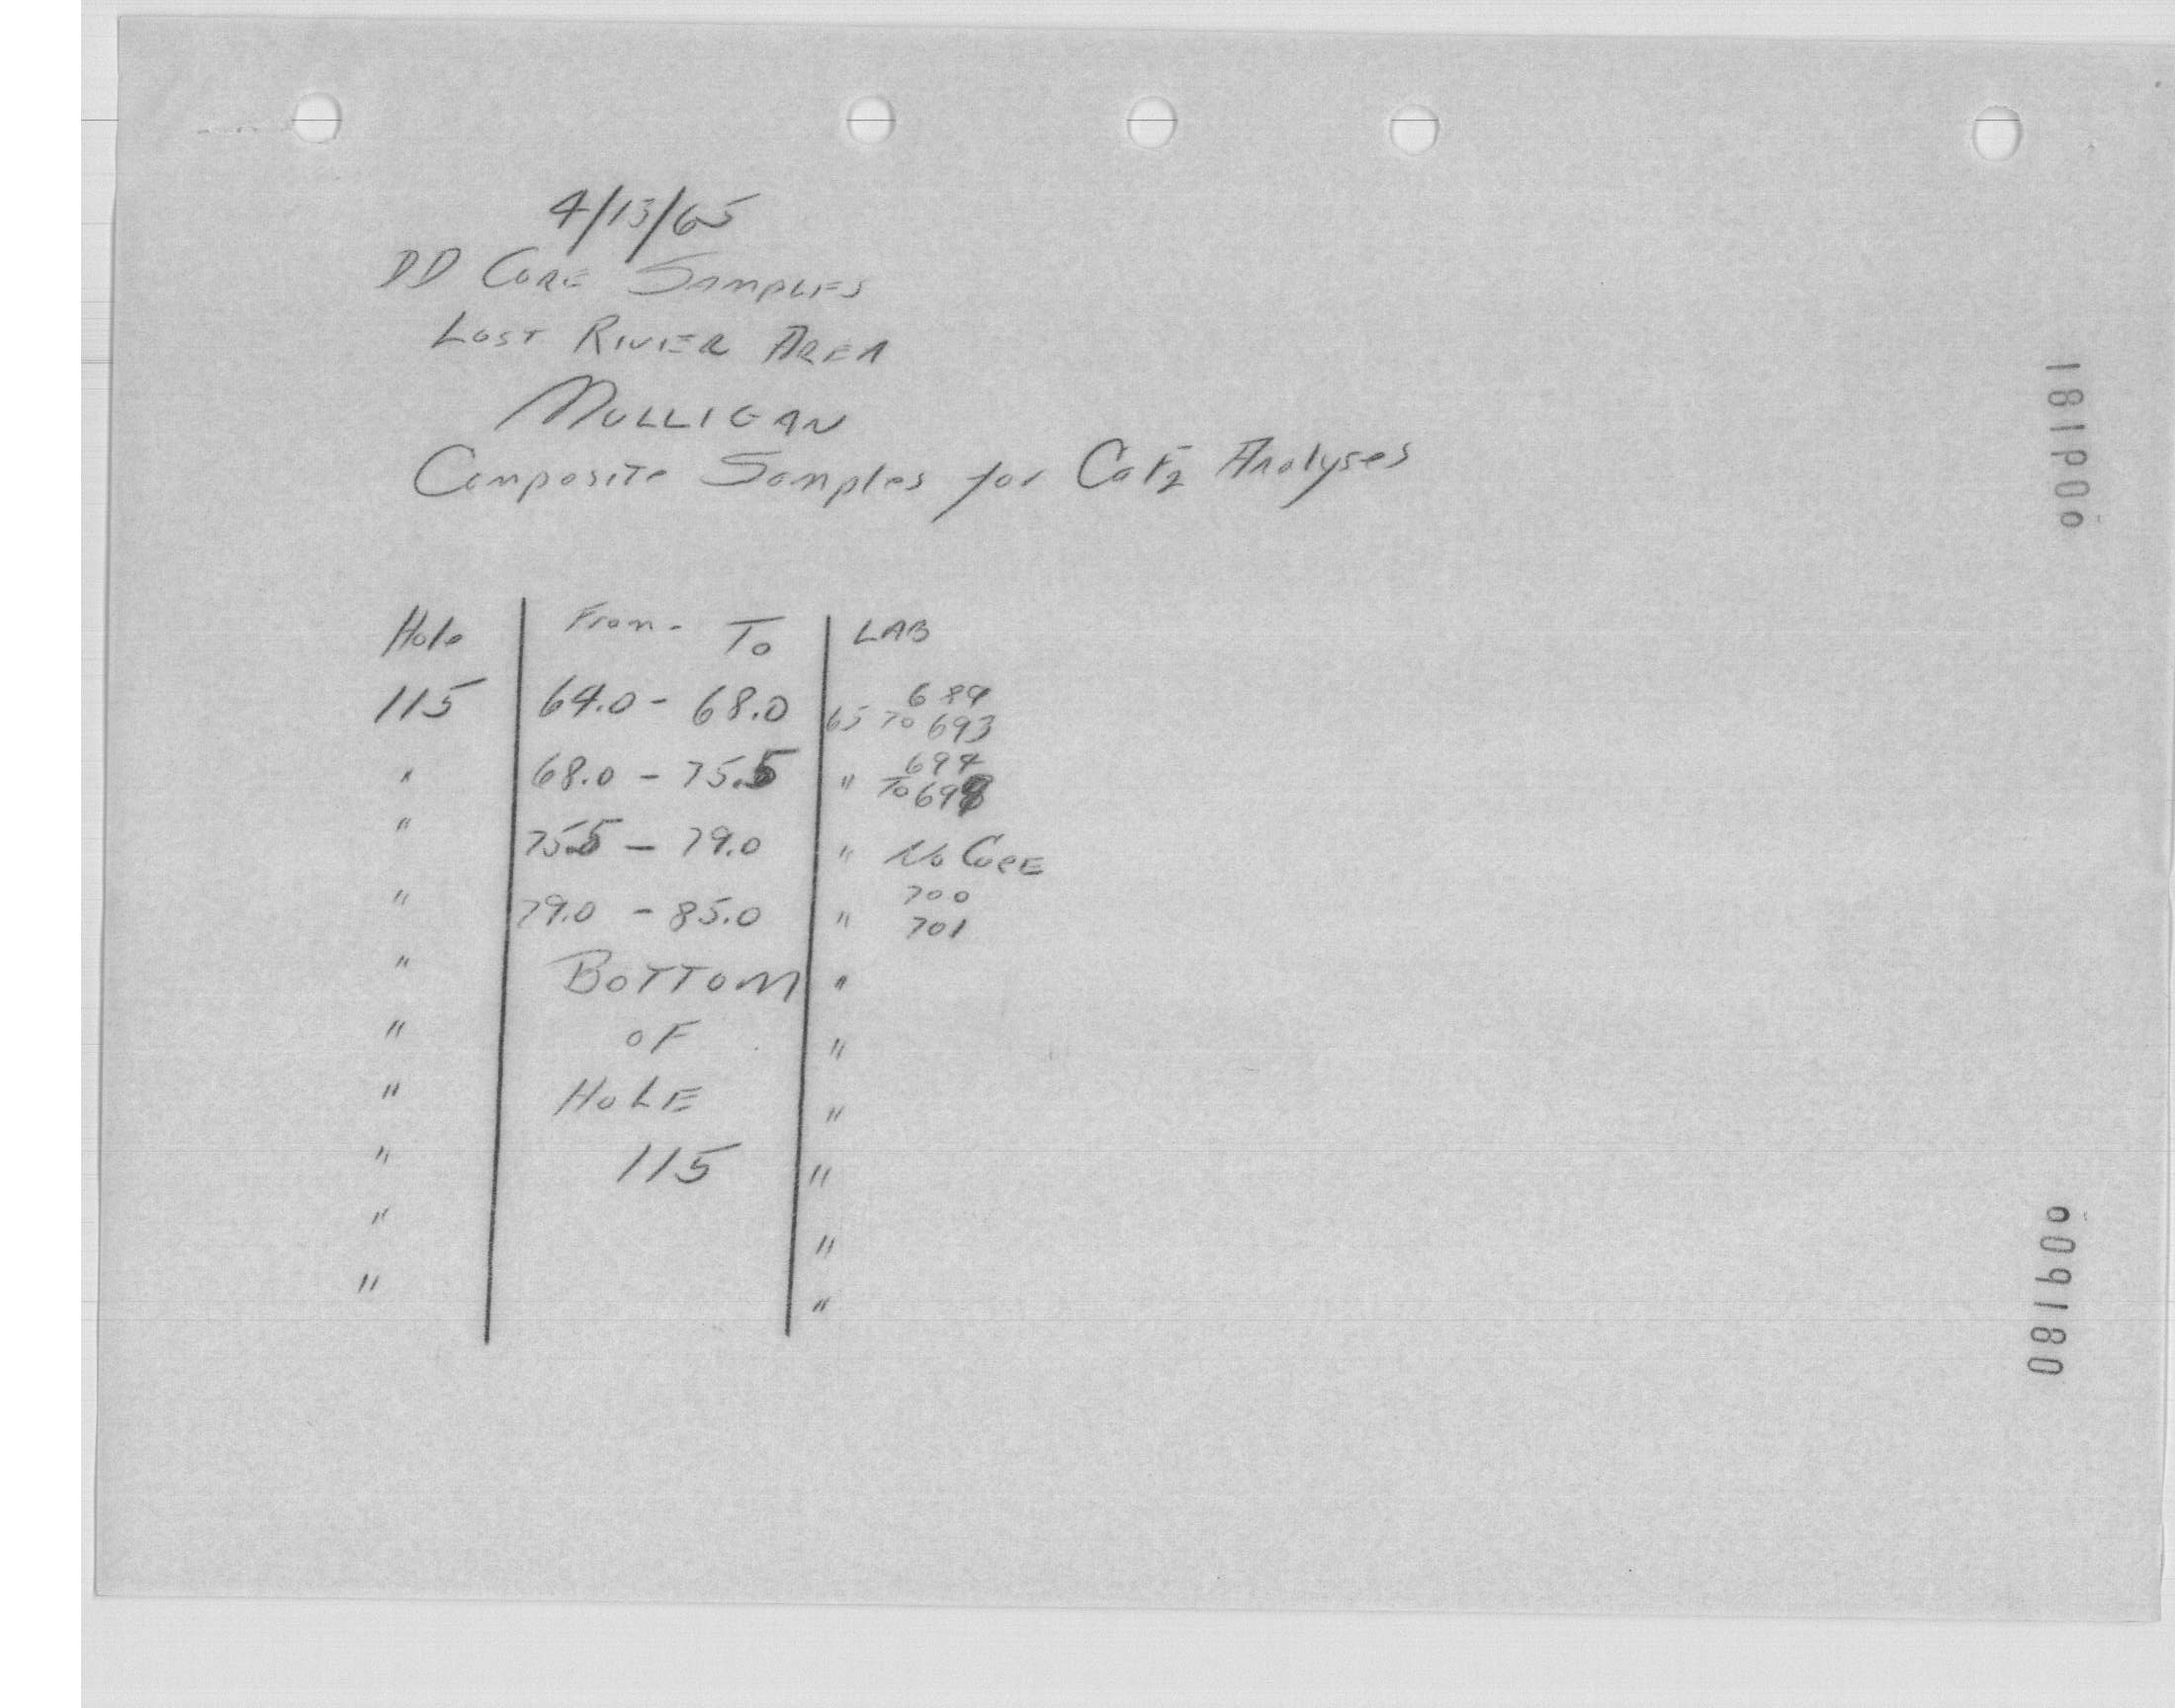 4/13/65
DD CORE SAMPLES
LOST RIVER AREA
MULLIGAN
Composite Samples for CaF2 Analyses
Hole From - To LAB
115 64.0 - 68.0 65 689 TO 693
" 68.0 - 75.5 " 694 TO 698
" 75.5 - 79.0 " No CORE
" 79.0 - 85.0 " 700 701
" BOTTOM "
" OF "
" HOLE "
" 115 "
" "
" "
009181
009180